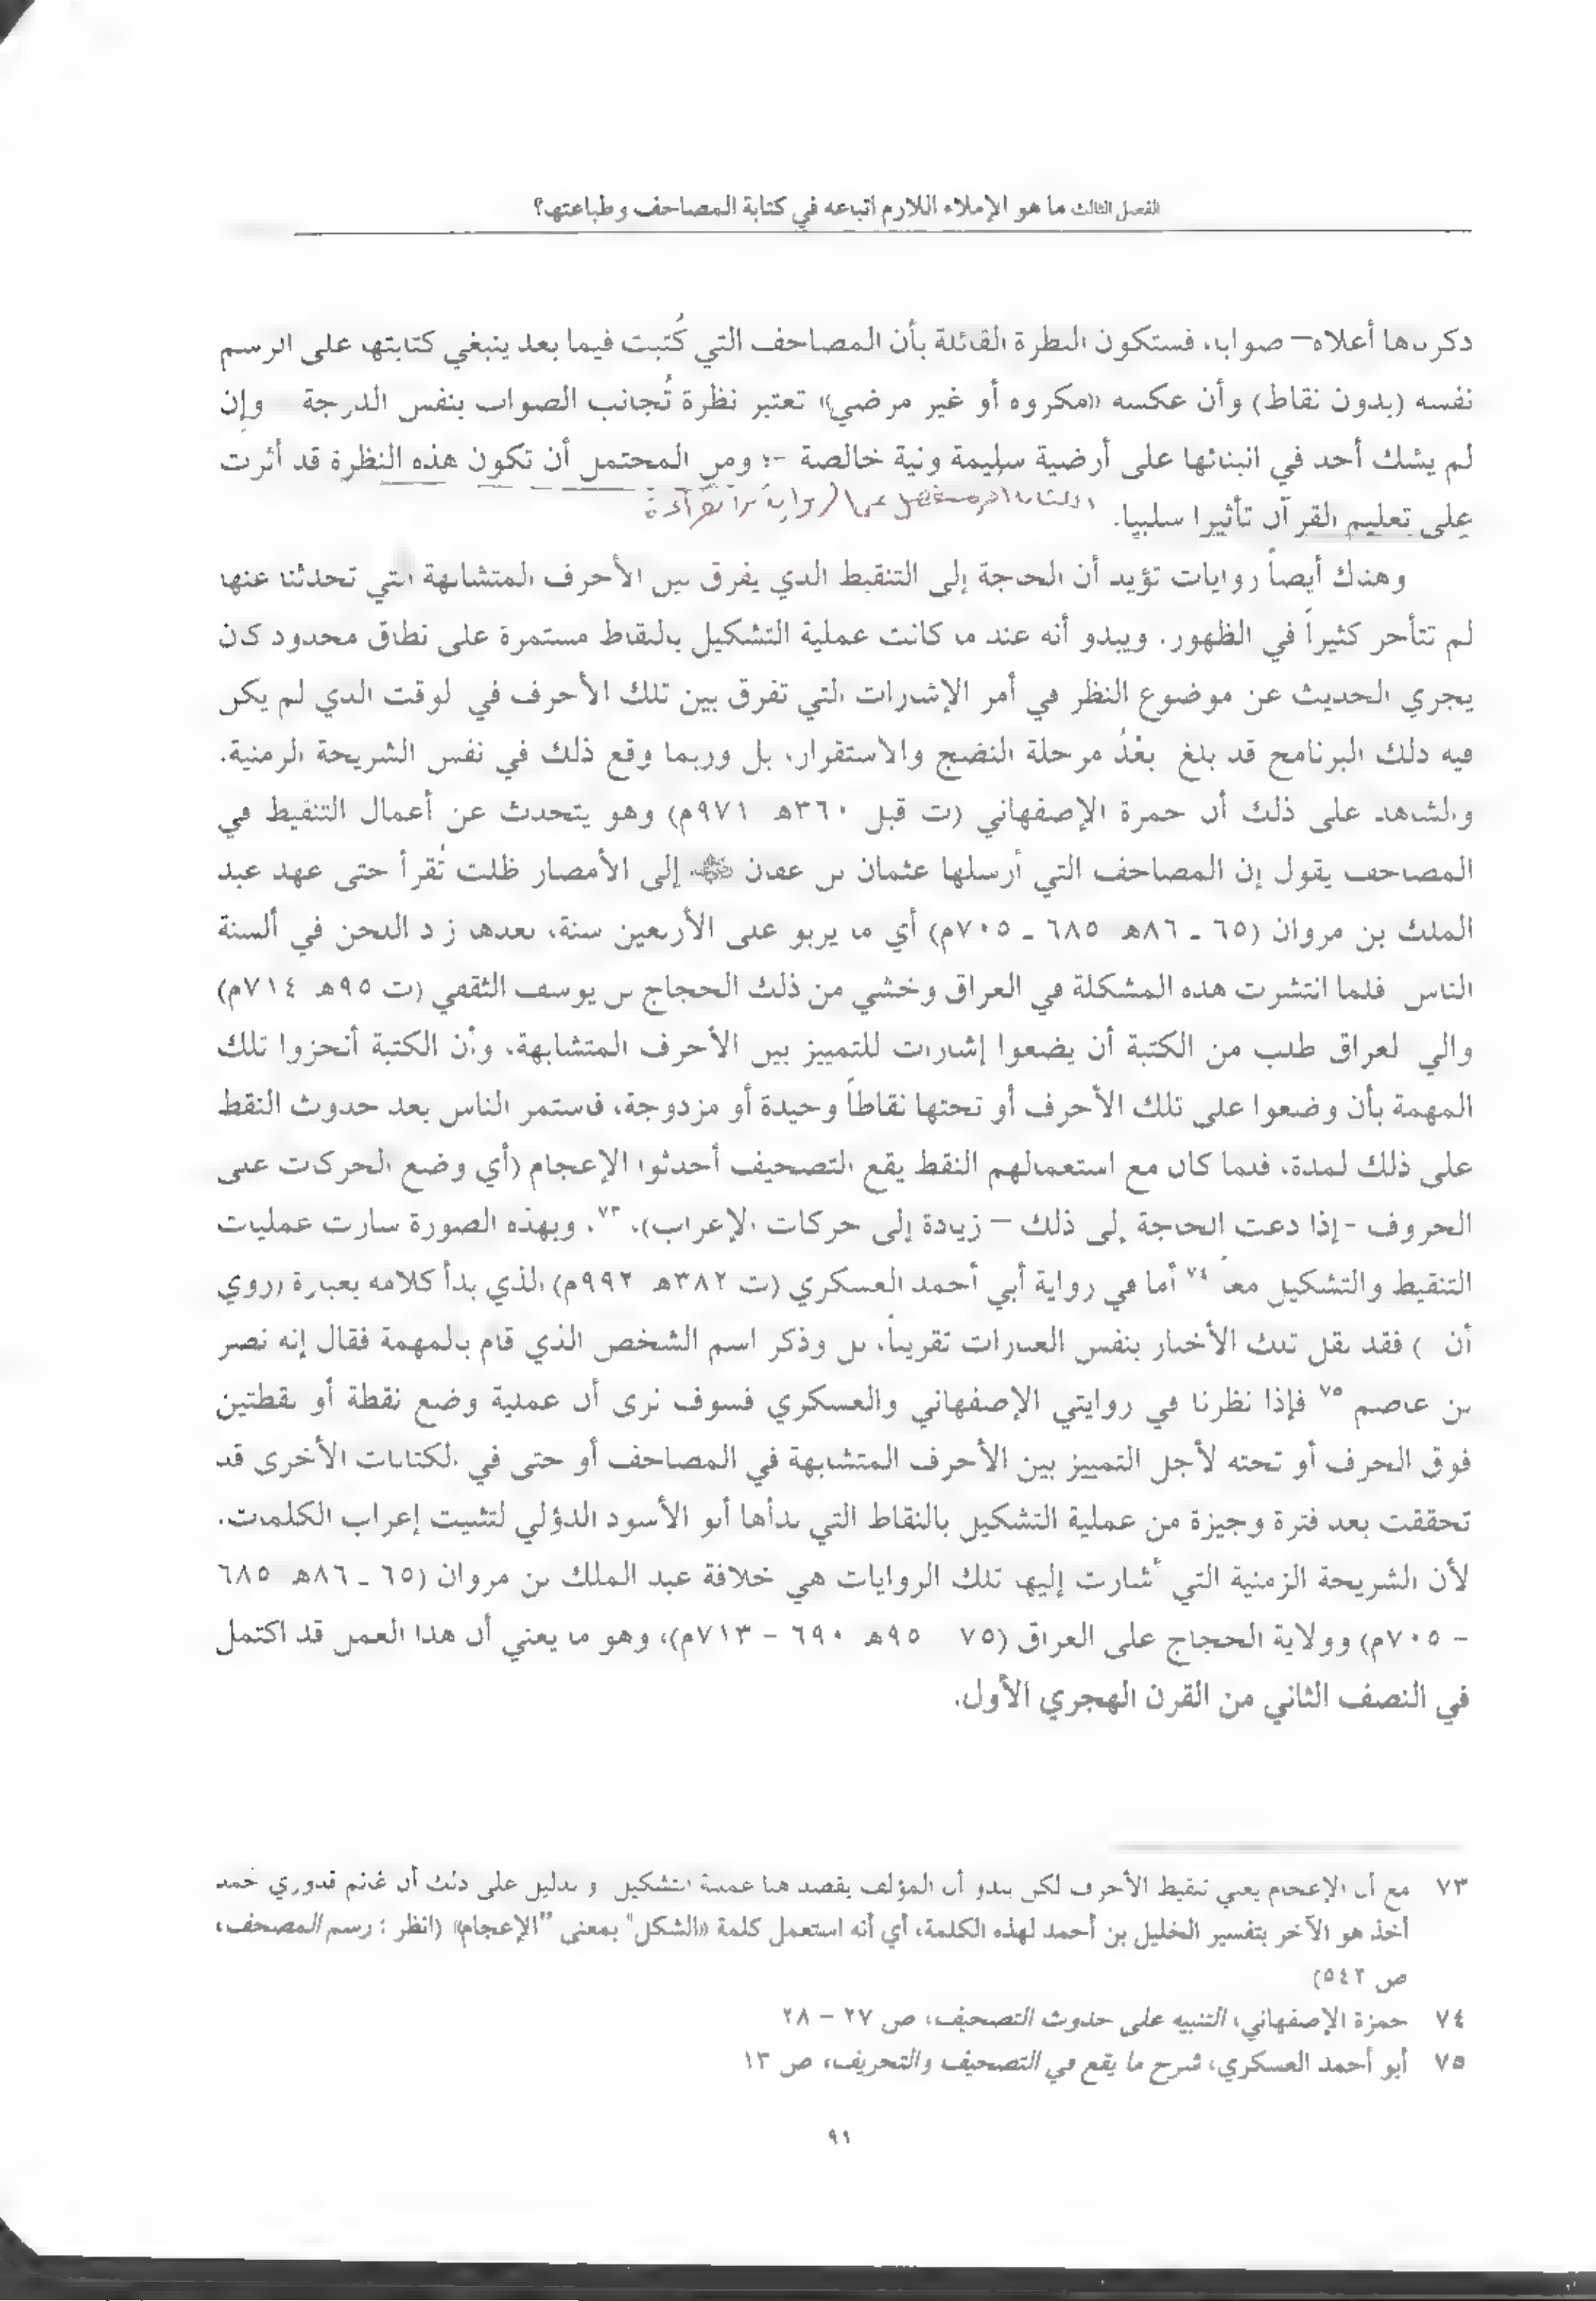 الفصل الثالث ما هو الإملاء اللازم اتباعه في كتابة المصاحف وطباعتها؟
ذكرناها أعلاه– صواب، فستكون النظرة القائلة بأن المصاحف التي كُتبت فيما بعد ينبغي كتابتها على الرسم
نفسه (بدون نقاط) وأن عكسه «مكروه أو غير مرضي» تعتبر نظرة تُجانب الصواب بنفس الدرجة وإن
لم يشك أحد في انبنائها على أرضية سليمة ونية خالصة -؛ ومن المحتمل أن تكون هذه النظرة قد أثرت
على تعليم القرآن تأثيرا سلبيا.
وهناك أيضاً روايات تؤيد أن الحاجة إلى التنقيط الذي يفرق بين الأحرف المتشابهة التي تحدثنا عنها
لم تتأخر كثيراً في الظهور. ويبدو أنه عند ما كانت عملية التشكيل بالنقاط مستمرة على نطاق محدود كان
يجري الحديث عن موضوع النظر في أمر الإشارات التي تفرق بين تلك الأحرف في الوقت الذي لم يكن
فيه ذلك البرنامج قد بلغ بعْدُ مرحلة النضج والاستقرار، بل وربما وقع ذلك في نفس الشريحة الزمنية.
والشاهد على ذلك أن حمزة الإصفهاني (ت قبل ٣٦٠هـ ٩٧١م) وهو يتحدث عن أعمال التنقيط في
المصاحف يقول إن المصاحف التي أرسلها عثمان بن عفان ﷺ إلى الأمصار ظلت تُقرأ حتى عهد عبد
الملك بن مروان (٦٥ ـ ٨٦هـ ٦٨٥ ـ ٧٠٥م) أي ما يربو على الأربعين سنة، بعدها زاد اللحن في ألسنة
الناس فلما انتشرت هذه المشكلة في العراق وخشي من ذلك الحجاج بن يوسف الثقفي (ت ٩٥هـ ٧١٤م)
والي العراق طلب من الكتبة أن يضعوا إشارات للتمييز بين الأحرف المتشابهة، وأن الكتبة أنجزوا تلك
المهمة بأن وضعوا على تلك الأحرف أو تحتها نقاطاً وحيدة أو مزدوجة، فاستمر الناس بعد حدوث النقط
على ذلك لمدة، فلما كان مع استعمالهم النقط يقع التصحيف أحدثوا الإعجام (أي وضع الحركات على
الحروف -إذا دعت الحاجة إلى ذلك – زيادة إلى حركات الإعراب)، ٧٣. وبهذه الصورة سارت عمليات
التنقيط والتشكيل معاً ٧٤ أما في رواية أبي أحمد العسكري (ت ٣٨٢هـ ٩٩٢م) الذي بدأ كلامه بعبارة (روي
أن ) فقد نقل تلك الأخبار بنفس العبارات تقريباً، بل وذكر اسم الشخص الذي قام بالمهمة فقال إنه نصر
بن عاصم ٧٥ فإذا نظرنا في روايتي الإصفهاني والعسكري فسوف نرى أن عملية وضع نقطة أو نقطتين
فوق الحرف أو تحته لأجل التمييز بين الأحرف المتشابهة في المصاحف أو حتى في الكتابات الأخرى قد
تحققت بعد فترة وجيزة من عملية التشكيل بالنقاط التي بدأها أبو الأسود الدؤلي لتثبيت إعراب الكلمات.
لأن الشريحة الزمنية التي أشارت إليها تلك الروايات هي خلافة عبد الملك بن مروان (٦٥ ـ ٨٦هـ ٦٨٥
– ٧٠٥م) وولاية الحجاج على العراق (٧٥ ٩٥هـ ٦٩٠ – ٧١٣م)، وهو ما يعني أن هذا العمل قد اكتمل
في النصف الثاني من القرن الهجري الأول.
٧٣ مع أن الإعجام يعني تنقيط الأحرف لكن يبدو أن المؤلف يقصد هنا عملية التشكيل والدليل على ذلك أن غانم قدوري حمد
أخذ هو الآخر بتفسير الخليل بن أحمد لهذه الكلمة، أي أنه استعمل كلمة «الشكل" بمعنى "الإعجام» (انظر : رسم المصحف،
ص ٥٤٢)
٧٤ حمزة الإصفهاني، التنبيه على حدوث التصحيف، ص ٢٧ – ٢٨
٧٥ أبو أحمد العسكري، شرح ما يقع في التصحيف والتحريف، ص ١٣
٩١